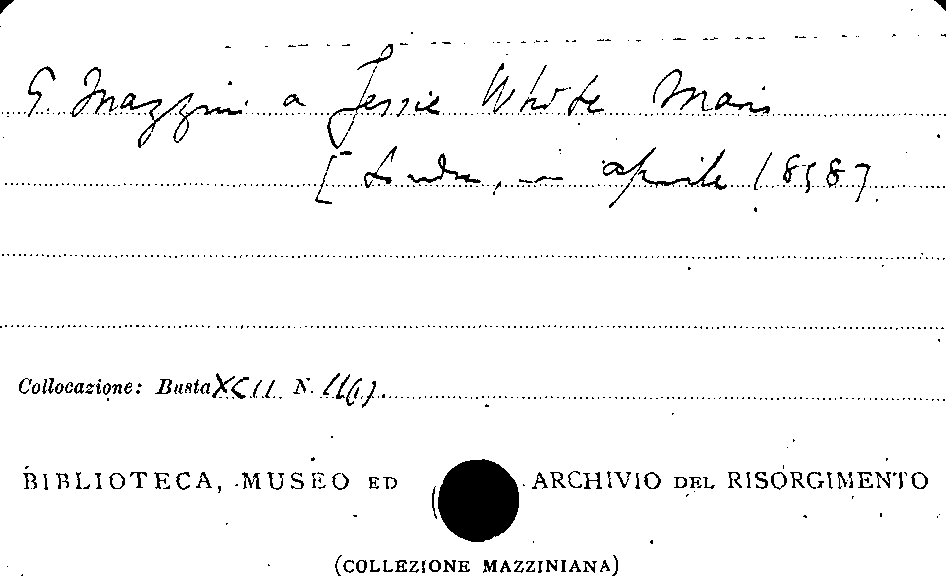 G. Mazzini a Jessie White Mario
[Londra, — aprile 1858].
Collocazione: Busta XCII N. 11(1).
BIBLIOTECA, MUSEO ED ARCHIVIO DEL RISORGIMENTO
(COLLEZIONE MAZZINIANA)